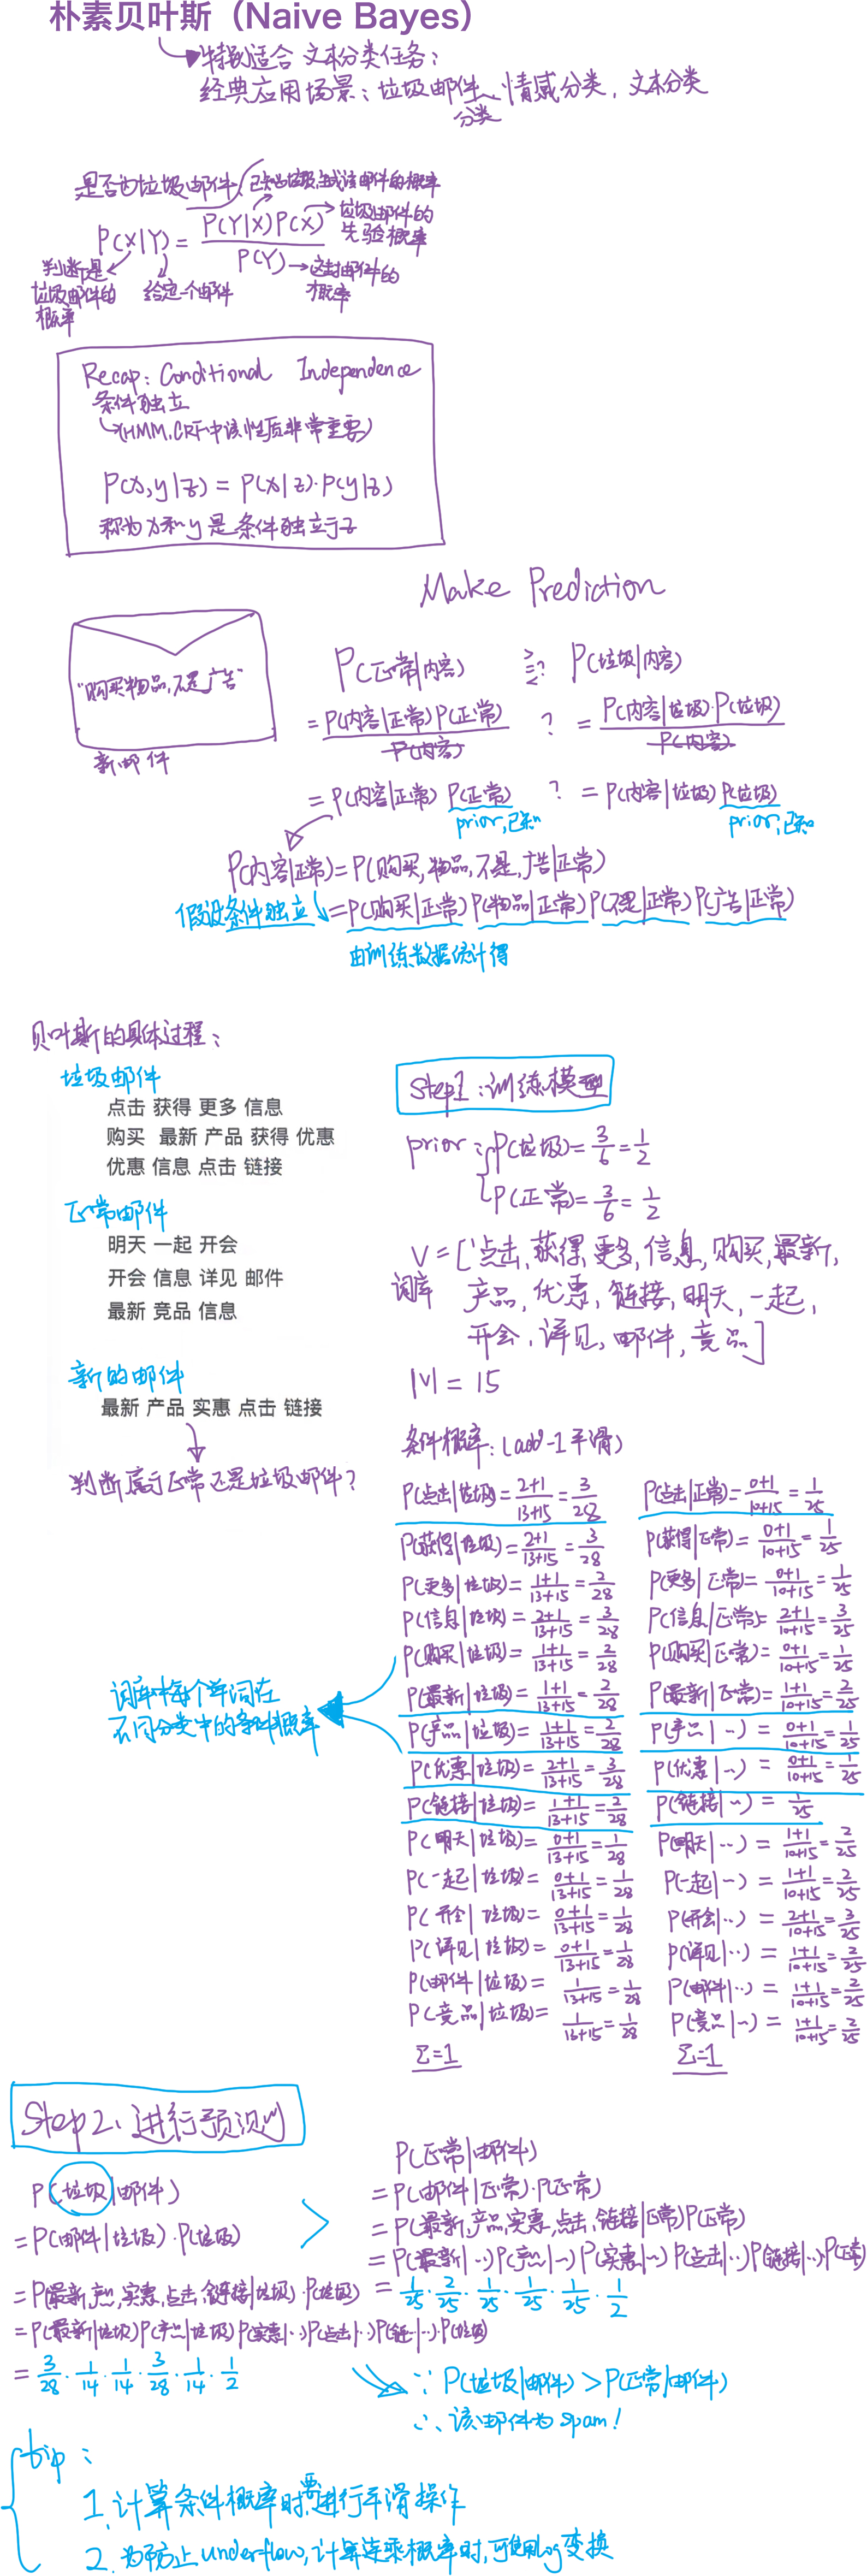 朴素贝叶斯（Naive Bayes）
特别适合 文本分类任务:
经典应用场景: 垃圾邮件分类、情感分类, 文本分类
是否为垃圾邮件 已知垃圾,生成该邮件的概率
P(X|Y) = P(Y|X)P(X) / P(Y)
垃圾邮件的先验概率
这封邮件的概率
判断是垃圾邮件的概率
给定一个邮件
Recap: Conditional Independence
条件独立
(HMM, CRF中该性质非常重要)
P(x,y|z) = P(x|z)·P(y|z)
称为x和y是条件独立于z
Make Prediction
"购买物品,不是广告"
新邮件
P(正常|内容) >=<? P(垃圾|内容)
= P(内容|正常)P(正常) / P(内容) ? = P(内容|垃圾)·P(垃圾) / P(内容)
= P(内容|正常) P(正常) ? = P(内容|垃圾) P(垃圾)
prior,已知 prior,已知
P(内容|正常)=P(购买,物品,不是,广告|正常)
假设条件独立 =P(购买|正常) P(物品|正常) P(不是|正常) P(广告|正常)
由训练数据统计得
贝叶斯的具体过程:
垃圾邮件
点击 获得 更多 信息
购买 最新 产品 获得 优惠
优惠 信息 点击 链接
正常邮件
明天 一起 开会
开会 信息 详见 邮件
最新 竞品 信息
新的邮件
最新 产品 实惠 点击 链接
判断属于正常还是垃圾邮件?
Step1:训练模型
prior: P(垃圾)=3/6=1/2
P(正常)=3/6=1/2
V=[点击,获得,更多,信息,购买,最新,
词库 产品,优惠,链接,明天,一起,
开会,详见,邮件,竞品]
|V|=15
条件概率: (add-1平滑)
P(点击|垃圾)=2+1/13+15=3/28 P(点击|正常)=0+1/10+15=1/25
P(获得|垃圾)=2+1/13+15=3/28 P(获得|正常)=0+1/10+15=1/25
P(更多|垃圾)=1+1/13+15=2/28 P(更多|正常)=0+1/10+15=1/25
P(信息|垃圾)=2+1/13+15=3/28 P(信息|正常)=2+1/10+15=3/25
P(购买|垃圾)=1+1/13+15=2/28 P(购买|正常)=0+1/10+15=1/25
P(最新|垃圾)=1+1/13+15=2/28 P(最新|正常)=1+1/10+15=2/25
P(产品|垃圾)=1+1/13+15=2/28 P(产品|··)=0+1/10+15=1/25
P(优惠|垃圾)=2+1/13+15=3/28 P(优惠|··)=0+1/10+15=1/25
P(链接|垃圾)=1+1/13+15=2/28 P(链接|··)=1/25
P(明天|垃圾)=0+1/13+15=1/28 P(明天|··)=1+1/10+15=2/25
P(一起|垃圾)=0+1/13+15=1/28 P(一起|··)=1+1/10+15=2/25
P(开会|垃圾)=0+1/13+15=1/28 P(开会|··)=2+1/10+15=3/25
P(详见|垃圾)=0+1/13+15=1/28 P(详见|··)=1+1/10+15=2/25
P(邮件|垃圾)=1/13+15=1/28 P(邮件|··)=1+1/10+15=2/25
P(竞品|垃圾)=1/13+15=1/28 P(竞品|··)=1+1/10+15=2/25
Σ=1 Σ=1
词库中每个单词在
不同分类中的条件概率
Step2、进行预测
P(垃圾|邮件)
=P(邮件|垃圾)·P(垃圾)
=P(最新,产品,实惠,点击,链接|垃圾)·P(垃圾)
=P(最新|垃圾)P(产品|垃圾)P(实惠|··)P(点击|··)P(链|··)·P(垃圾)
=3/28·1/14·1/14·3/28·1/14·1/2
>
P(正常|邮件)
=P(邮件|正常)·P(正常)
=P(最新,产品,实惠,点击,链接|正常)P(正常)
=P(最新|··)P(产品|··)P(实惠|··)P(点击|··)P(链接|··)P(正常)
=1/25·2/25·1/25·1/25·1/25·1/2
∵ P(垃圾|邮件)>P(正常|邮件)
∴ 该邮件为spam!
tip:
1. 计算条件概率时要进行平滑操作
2. 为防止underflow,计算连乘概率时,可使用log变换